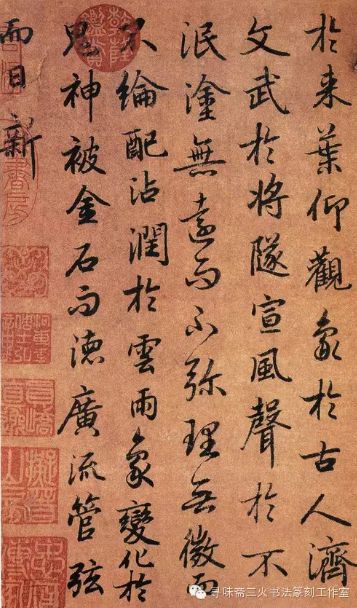 於来葉仰觀象於古人濟
文武於將隊宣風聲於不
泯塗無遠而不弥理無微而
不綸配沾潤於雲雨象變化於
鬼神被金石而德廣流管弦
而日新
寻味斋三火书法篆刻工作室